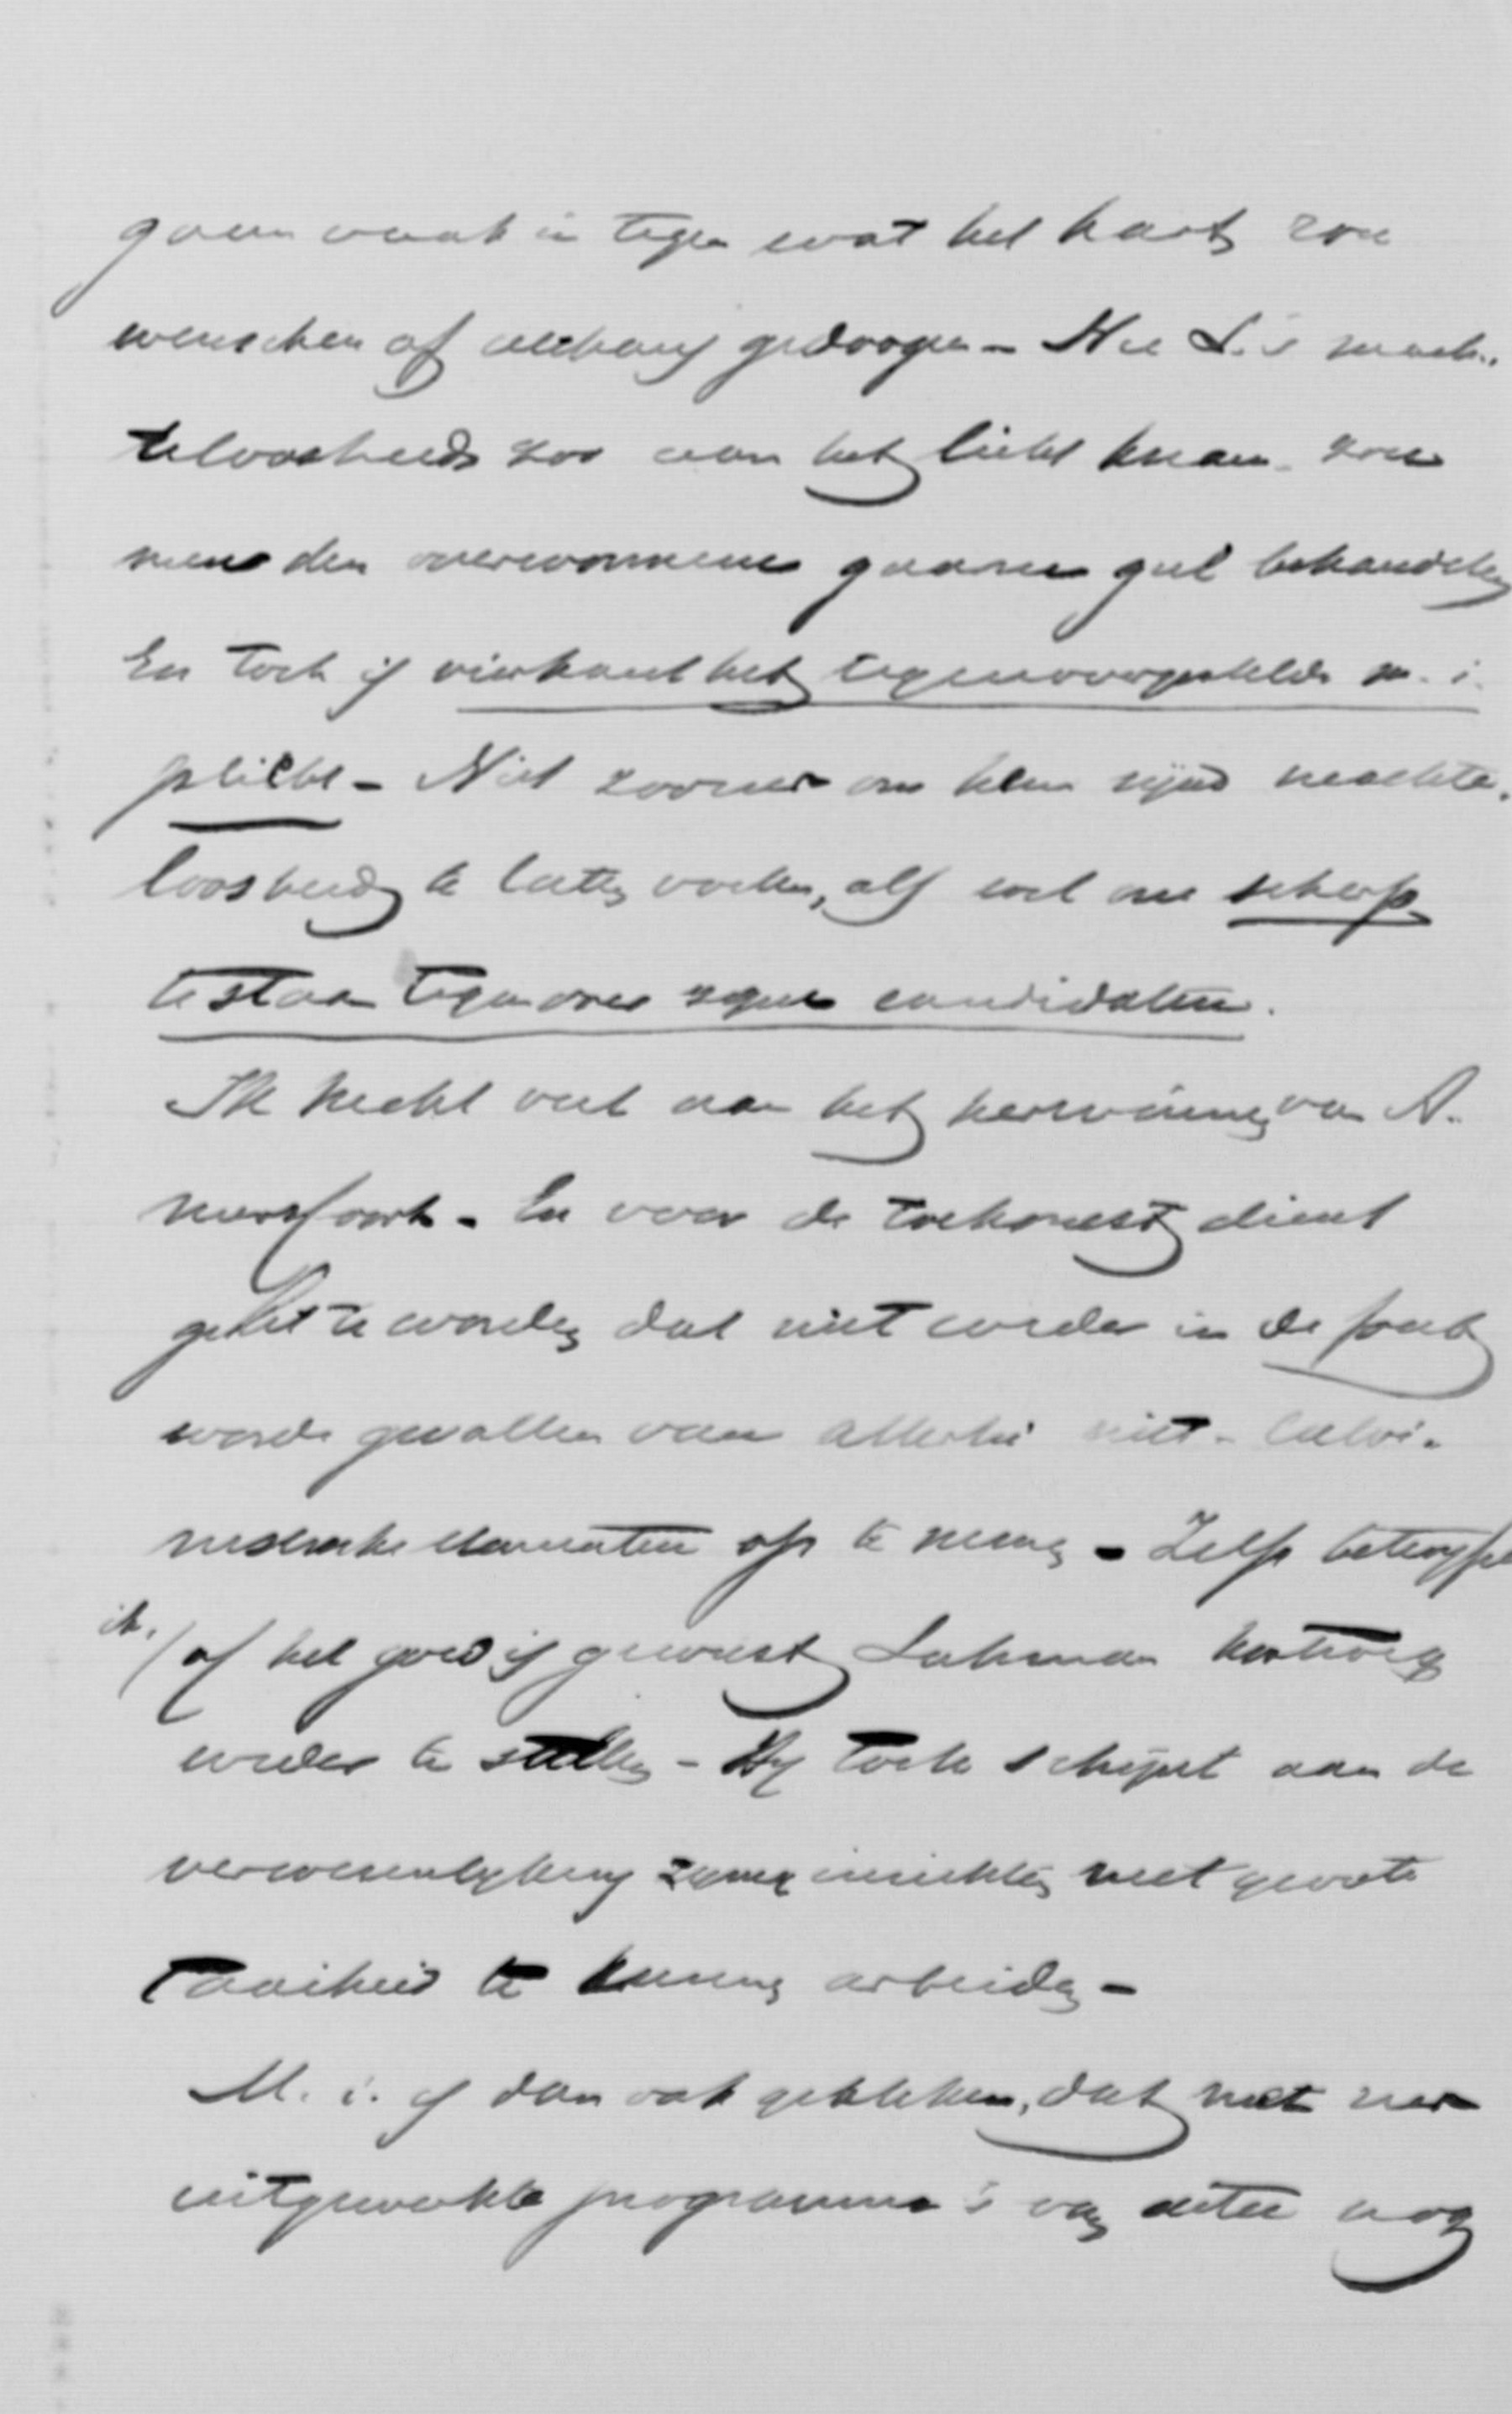 gaan vaak in tegen wat het hart zou
wenschen of althans gedoogen - Nu L.'s mach-
teloosheid zoo aan het licht kwam zou
men den overwonnene gaarne gul behandelen
En toch is vierkant het tegenovergestelde m. i.
plicht - Niet zoozeer om hem zijne machte-
loosheid te laten voelen, als wel om scherp
te staan tegenover zijne candidaten.
Ik hecht veel aan het herwinnen van A-
mersfoort - En voor de toekomst dient
gelet te worden dat niet weder in de fout
worde gevallen van allerlei niet-Calvi-
nistische elementen op te nemen - Zelfs betwyfel
ik / of het goed is geweest Lohman
weder te stellen - Hy toch schijnt aan de
verwezenlyking zyner inzichten met groote
taaiheid te kunnen arbeiden -
M. i. is dan ook gebleken, dat met
uitgewerkte programma's van actie nog